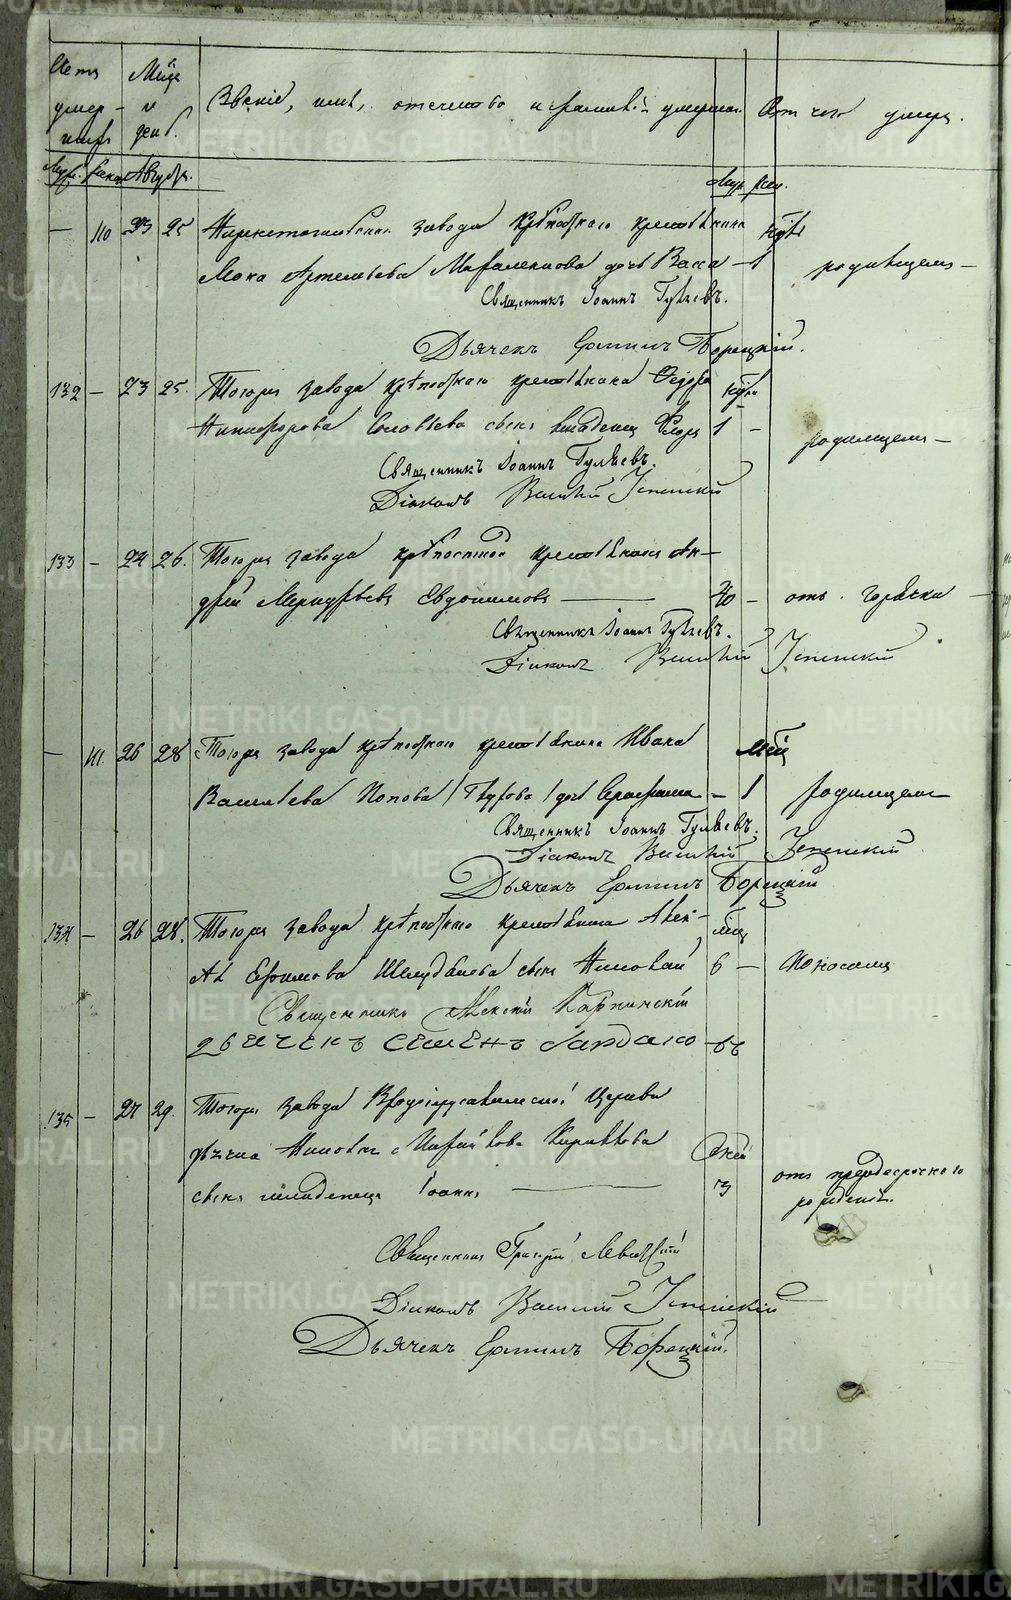 Счетъ умер- шихъ
Мѣсяцъ и день.
Званіе, имя, отечество и фамилія умершихъ
Отъ чего умеръ.
Муж. Жен. Августъ.
Муж. Жен.
— 110 23 25 Нижнетагильскаго завода крѣпостнаго крестьянина
Мока Артемьева дочь Васса — 1 родимцемъ —
Священникъ Іоаннъ Гуляевъ.
Дьячекъ Ермилъ Борецкій.
132 — 23 25. Тогоже завода крѣпостнаго крестьянина Ѳедора
Никифорова Соловьева сынъ младенец Флоръ 1 — родимцемъ —
Священникъ Іоаннъ Гуляевъ.
Діаконъ Василій Успенскій
133 — 24 26. Тогоже завода крѣпостной крестьянинъ Ан-
дрей Меркурьевъ Евдокимовъ — 70 — отъ горячки
Священникъ Іоаннъ Гуляевъ.
Діаконъ Василій Успенскій
— 111. 26 28 Тогоже завода крѣпостнаго крестьянина Ивана
Васильева Попова дочь Серафима — 1 родимцемъ
Священникъ Іоаннъ Гуляевъ.
Діаконъ Василій Успенскій
Дьячекъ Ермилъ Борецкій
134 — 26 28. Тогоже завода крѣпостнаго крестьянина Алек-
сѣя Ефимова сынъ Николай 6 — поносомъ
Священникъ Алексій Карпинскій
Дьячекъ Семенъ
135 — 27 29. Тогоже завода Входоіерусалимской Церкви
дьячка Николая сынъ младенецъ Іоаннъ — 3 отъ преждесрочнаго рожденія.
Священникъ Григорій Левитскій
Діаконъ Василій Успенскій
Дьячекъ Ермилъ Борецкій.
METRIKI.GASO-URAL.RU